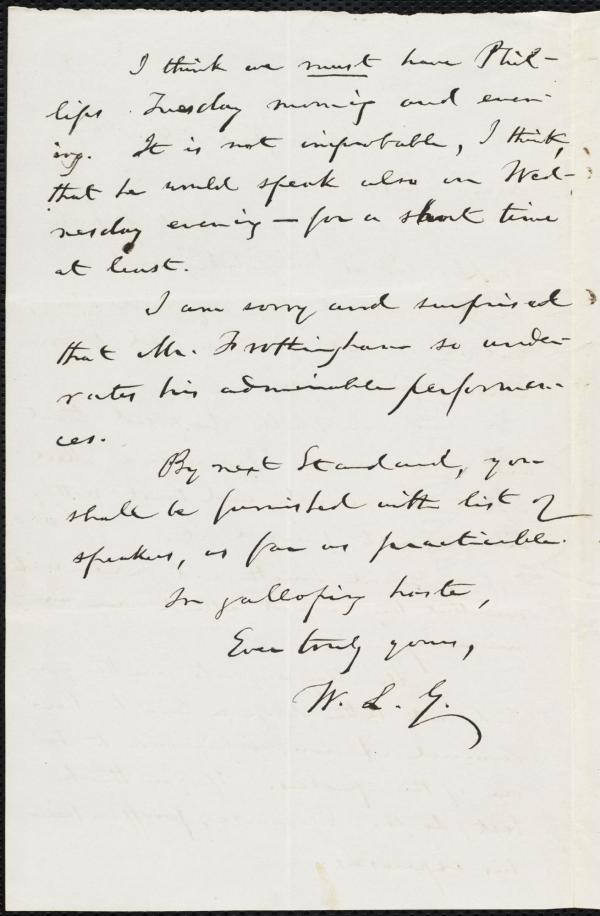 I think we must have Phil-
lips Tuesday morning and even-
ing. It is not improbable, I think,
that he would speak also on Wed-
nesday evening — for a short time
at least.
I am sorry and surprised
that Mr. Frothingham so under-
rates his admirable performan-
ces.
By next Standard, you
shall be furnished with list of
speakers, as far as practicable.
In galloping haste,
Ever truly yours,
W. L. G.